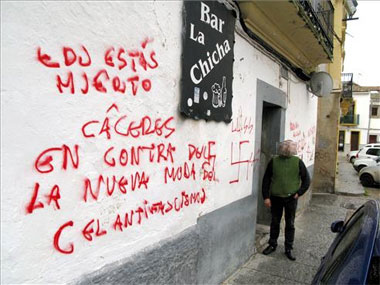 EDU ESTÁS
MUERTO
Bar
La
Chicha
CÁCERES
EN CONTRA DE
LA NUEVA MODA DEL
ANTIFASCISMO